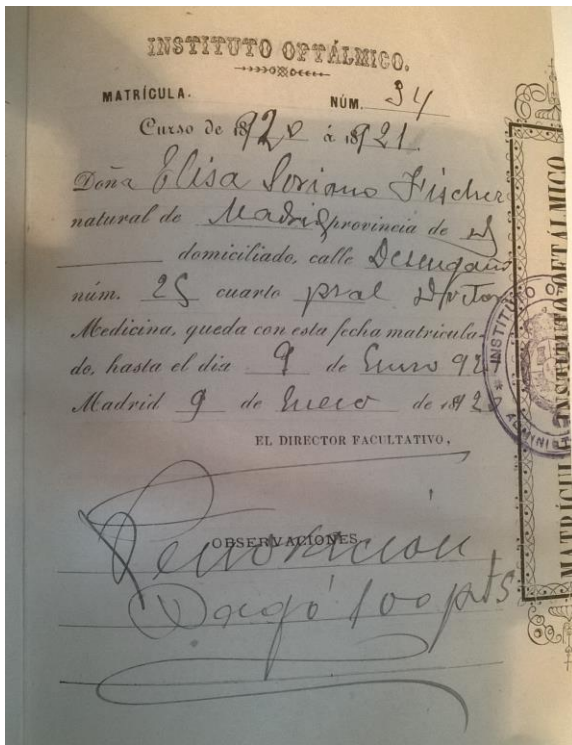 INSTITUTO OFTÁLMICO.
MATRÍCULA. NÚM. 34
Curso de 1920 á 1921.
Doña Elisa Soriano Fischer
natural de Madrid provincia de id
domiciliado, calle Desengaño
núm. 25 cuarto pral
Medicina, queda con esta fecha matricula-
do, hasta el dia 9 de Enero 921
Madrid 9 de Enero de 1920
EL DIRECTOR FACULTATIVO,
OBSERVACIONES
Renovación
Pagó 100 pts
MATRÍCUL
INSTITUTO OFTÁLMICO
INSTITUTO O
ADMINIST